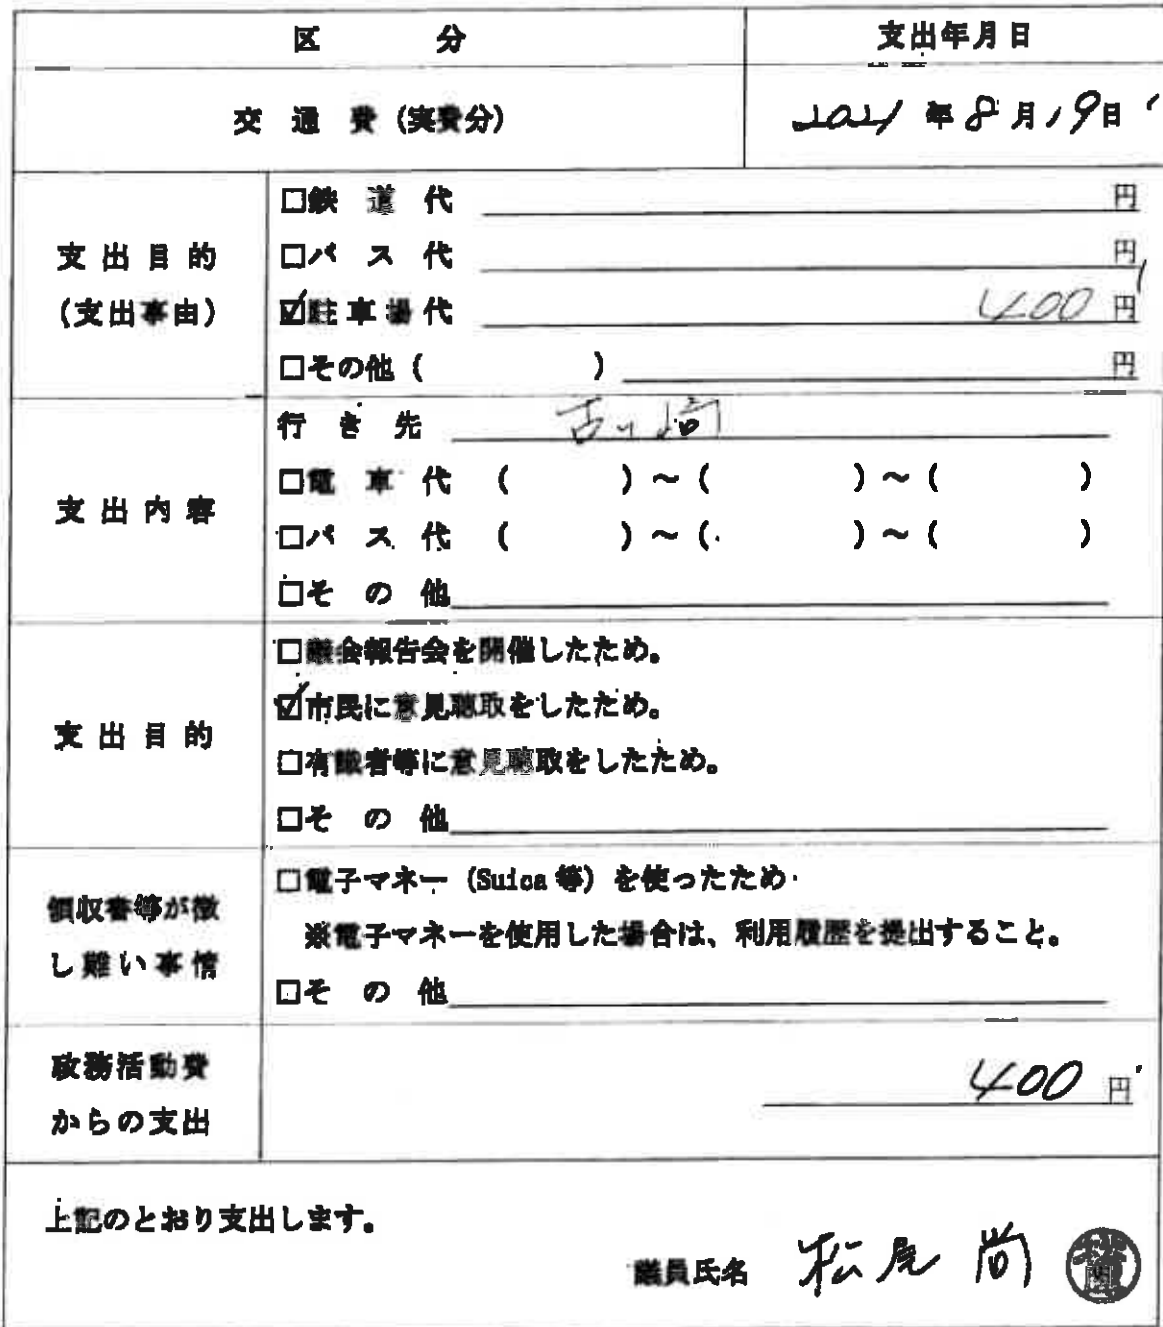 区 分 支出年月日
交 通 費 (実費分) 2021 年 8 月 19 日
支 出 目 的
(支出事由)
□鉄 道 代 円
□バ ス 代 円
☑駐 車 場 代 400 円
□その他 ( ) 円
支 出 内 容
行 き 先 古ヶ崎
□電 車 代 ( ) ～ ( ) ～ ( )
□バ ス 代 ( ) ～ ( ) ～ ( )
□そ の 他
支 出 目 的
□議会報告会を開催したため。
☑市民に意見聴取をしたため。
□有識者等に意見聴取をしたため。
□そ の 他
領収書等が徴
し難い事情
□電子マネー (Suica 等) を使ったため
※電子マネーを使用した場合は、利用履歴を提出すること。
□そ の 他
政務活動費
からの支出
400 円
上記のとおり支出します。
議員氏名 松尾 尚